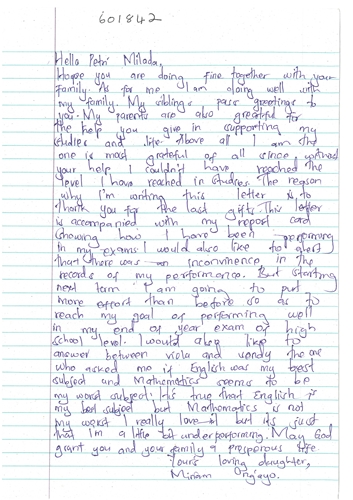 601842
Hello Petr Milada,
Hope you are doing fine together with your
family. As for me I am doing well with
my family. My siblings pass greetings to
you. My parents are also grateful for
the help you give in supporting my
studies and life. Above all I am the
one is most grateful of all since without
your help I couldn't have reached the
level I have reached in studies. The reason
why I'm writing this letter is to
thank you for the last gift. This letter
is accompanied with my report card
showing how I have been performing
in my exams. I would also like to
that there was an inconvinence in the
records of my performance. But starting
next term I am going to put
more effort than before so as to
reach my goal of performing well
in my end of year exam of high
school level. I would also like to
answer between viola and vendy the one
who asked me if English was my best
subject and Mathematics seems to be
my worst subject. It's true that English is
my best subject but Mathematics is not
my worst I really love it but its just
that I'm a little bit underperforming. May God
grant you and your family a prosperous life
Yours loving daughter,
Miriam